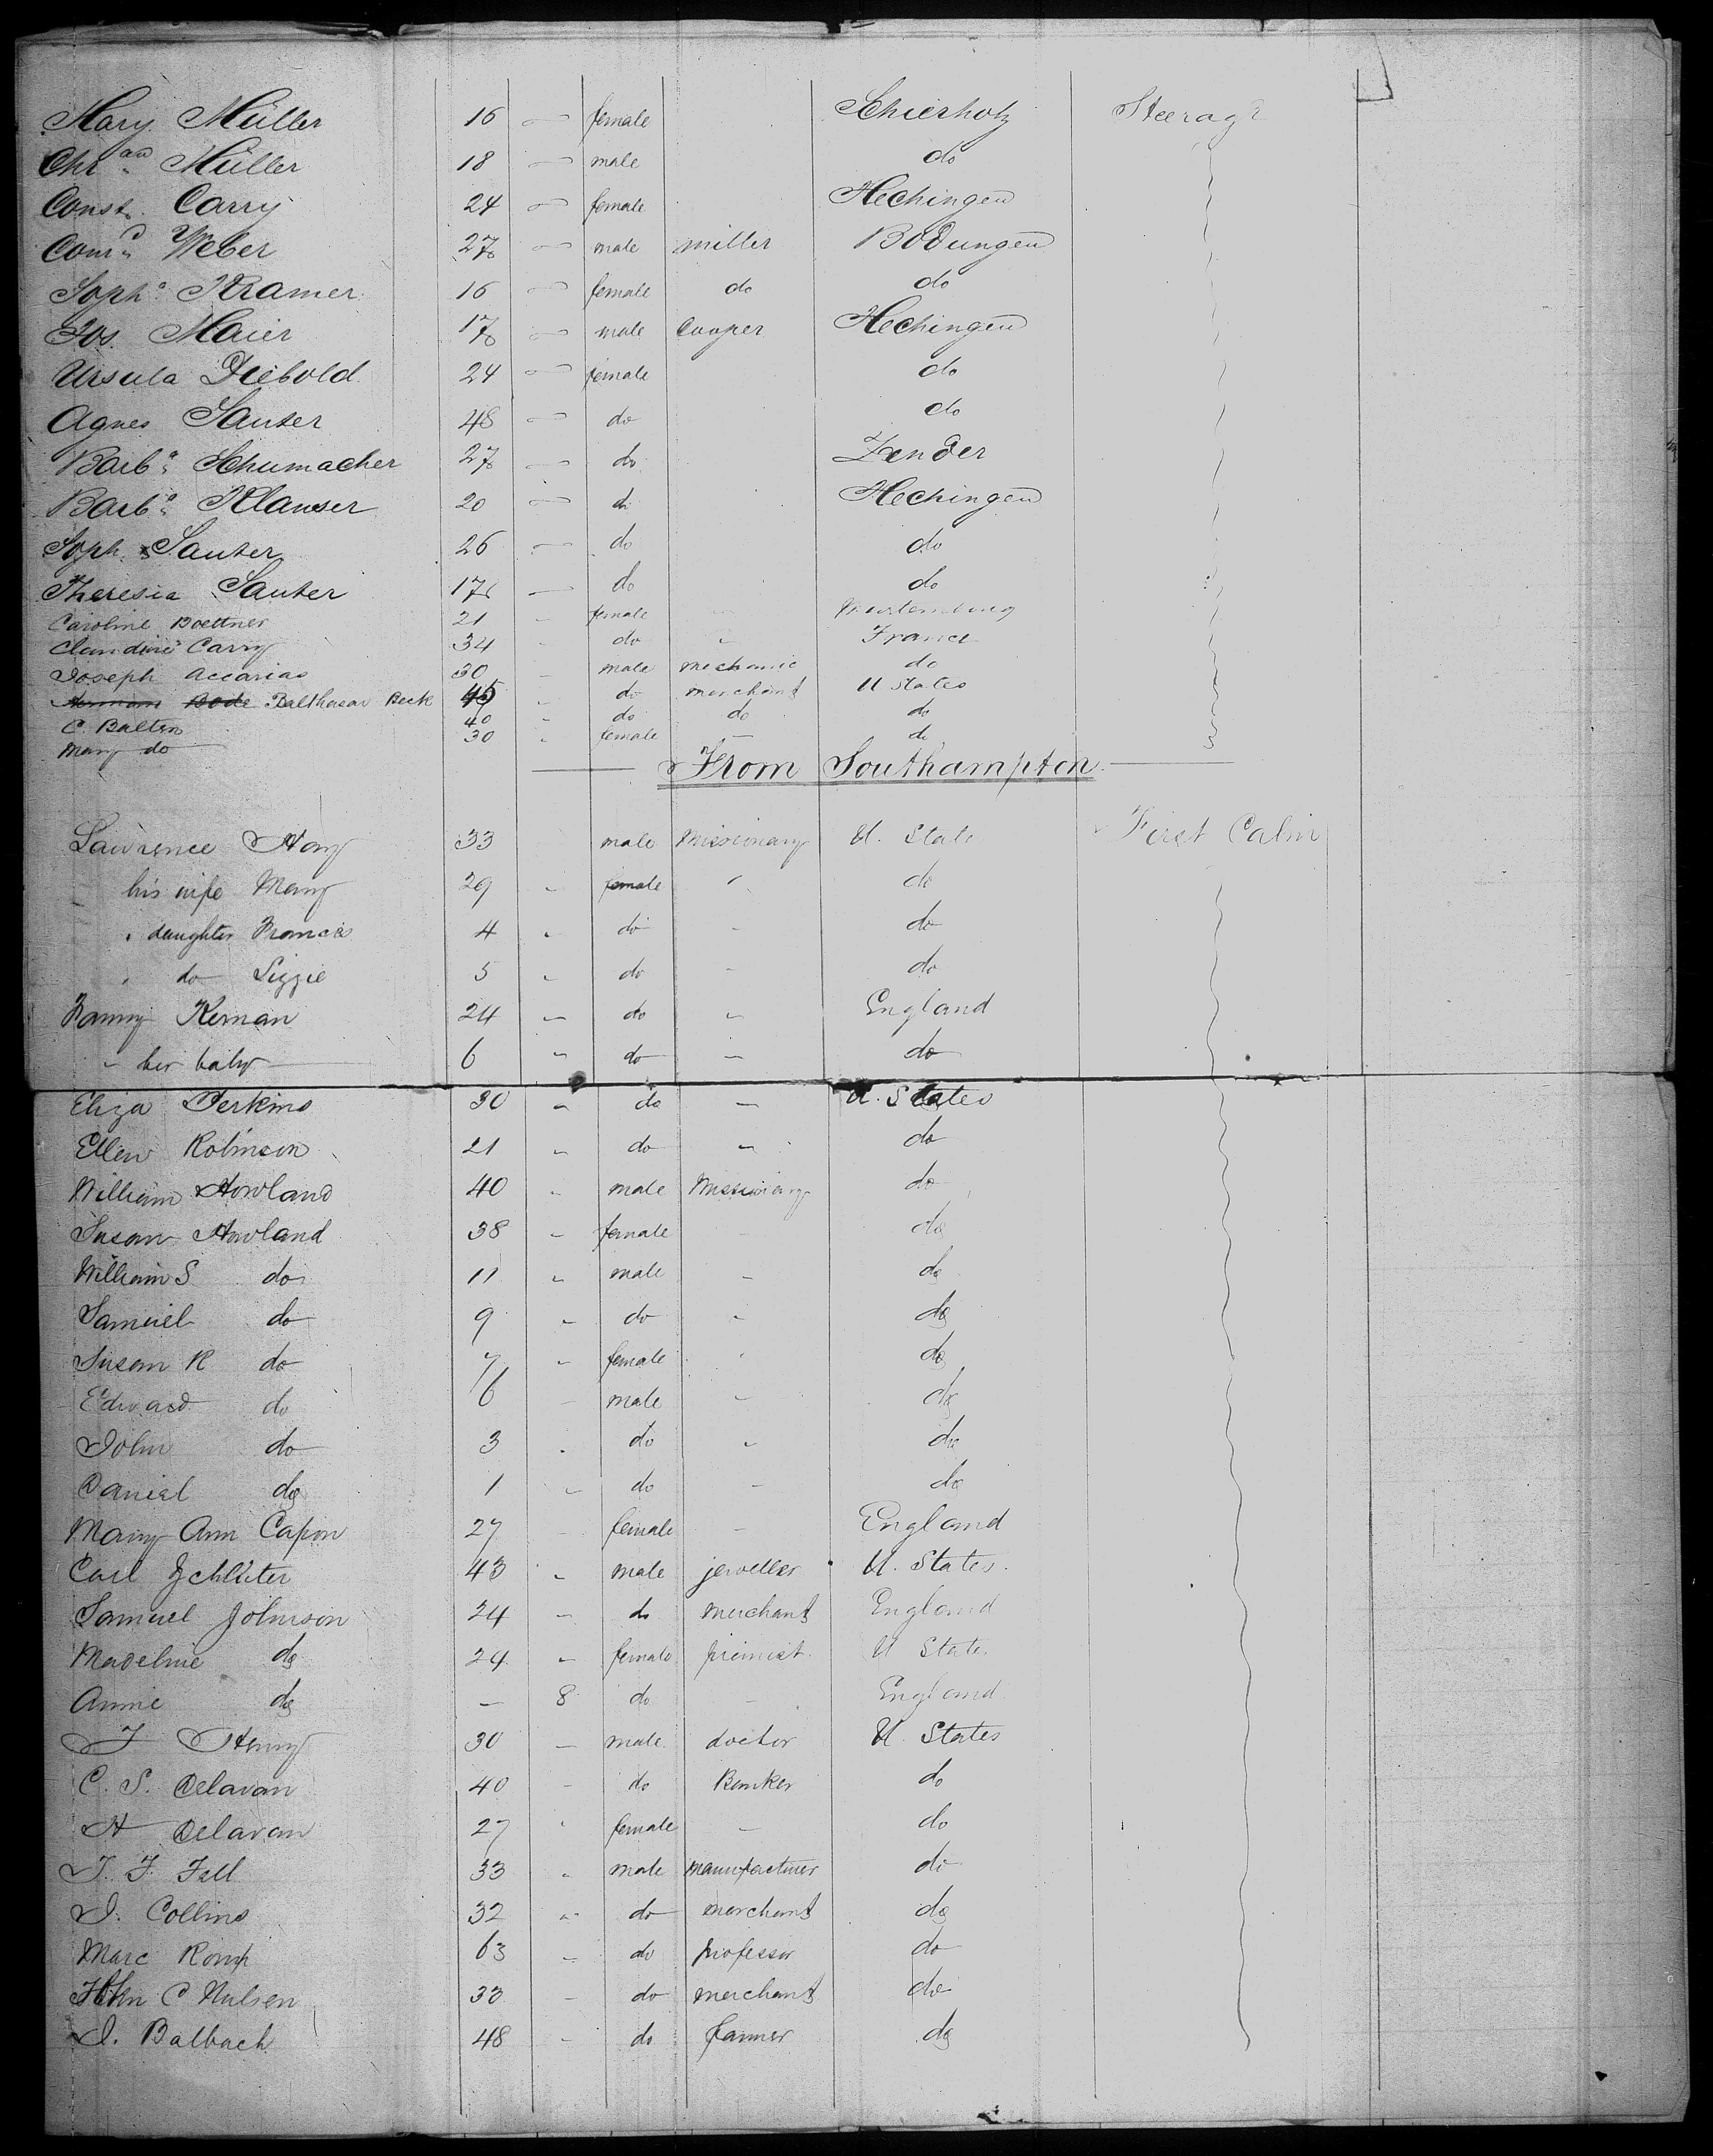 Mary Müller 16 — female Schierholz Steerage
Chr.an Müller 18 — male do
Const. Carry 24 — female Hechingen
Conr.d Weber 27 — male miller Bodungen
Soph.a Kramer 16 — female do do
Jos. Maier 17 — male Cooper Hechingen
Ursula Diebold 24 — female do
Agnes Sauter 48 — do do
Barb.a Schumacher 27 — do Zender
Barb.a Klauser 20 — do Hechingen
Soph. Sauter 26 — do do
Theresia Sauter 17 — do do
Caroline Boettner 21 - female Wurtemburg
Claudine Carry 34 - do - France
Joseph Accarias 30 male mechanic do
Herman Bode Balthasar Beck 45 - do merchant U States
C. Balten 40 - do do do
Mary do 30 - female — do
From Southampton
Lawrence 33 male Missionary U. State First Cabin
his wife Mary 29 - female - do
" daughter Francis 4 - do - do
" do Lizzie 5 - do - do
Fanny Kernan 24 - do - England
" her baby 6 - do - do
Eliza Perkins 30 - do - U. States
Ellen Robinson 21 - do - do
William Howland 40 - male Missionary do
Susan Howland 38 - female - do
William S do 11 - male - do
Samuel do 9 - do - do
Susan R do 7 - female - do
Edward do 6 - male - do
John do 3 - do - do
Daniel do 1 - do - do
Mary Ann Capon 27 - female - England
Carl Schlüter 43 - male jeweller U. States.
Samuel Johnson 24 - do merchant England
Madeline do 24 - female U State
Annie do — 8 do - England
Henry 30 — male doctor U. States
C. S. Delavan 40 - do Banker do
H Delavan 27 - female — do
J. F. Fell 33 - male manufacturer do
J. Collins 32 - do merchant do
Marc 63 - do professor do
John C Hulsen 33 - do merchant do
J. Balbach 48 - do farmer do